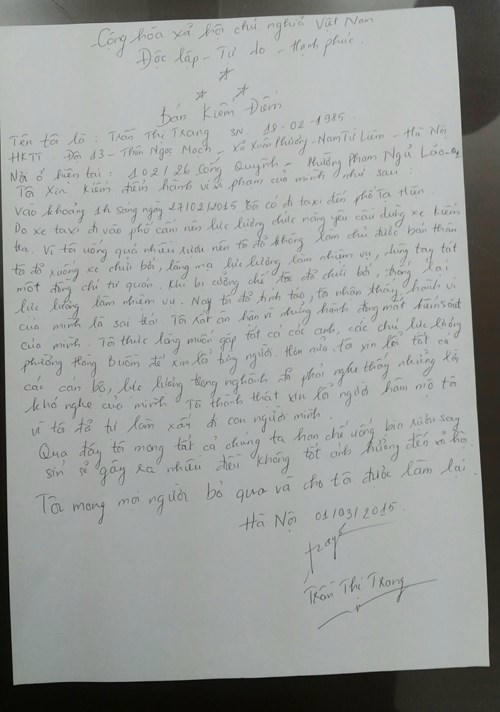 Cộng hòa xã hội chủ nghĩa Việt Nam
Độc lập - Tự do - Hạnh phúc.
Bản Kiểm Điểm
Tên tôi là: Trần Thị Trang SN. 18-02-1985
HKTT: Đội 13 - Thôn Ngọc Mạch - Xã Xuân Phương - Nam Từ Liêm - Hà Nội
Nơi ở hiện tại: 102/26 Cống Quỳnh - Phường Phạm Ngũ Lão - Q1
Tôi xin kiểm điểm hành vi vi phạm của mình như sau:
Vào khoảng 1h sáng ngày 27/02/2015 tôi có đi taxi đến phố Tạ Hiện.
Do xe taxi đi vào phố cấm nên lực lượng chức năng yêu cầu dừng xe kiểm
tra. Vì tôi uống quá nhiều rượu nên tôi đã không làm chủ được bản thân
tôi đã xuống xe chửi bới, lăng mạ lực lượng làm nhiệm vụ, dùng tay tát
một đồng chí tư quản. Khi bị cưỡng chế tôi đã chửi bới, chống lại
lực lượng làm nhiệm vụ. Nay tôi đã tỉnh táo, tôi nhận thấy hành vi
của mình là sai trái. Tôi rất ân hận vì những hành động mất kiểm soát
của mình. Tôi thực lòng muốn gặp tất cả các anh, các chú lực lượng
phường Hàng Buồm để xin lỗi từng người. Hơn nữa tôi xin lỗi tất cả
các cán bộ, lực lượng trong nghành đã phải nghe thấy những lời
khó nghe của mình. Tôi thành thật xin lỗi người hâm mộ tôi
vì tôi đã tự làm xấu đi con người mình.
Qua đây tôi mong tất cả chúng ta hạn chế uống bia rượu say
sỉn sẽ gây ra nhiều điều không tốt ảnh hưởng đến xã hội.
Tôi mong mọi người bỏ qua và cho tôi được làm lại.
Hà Nội 01/03/2015.
Trang
Trần Thị Trang